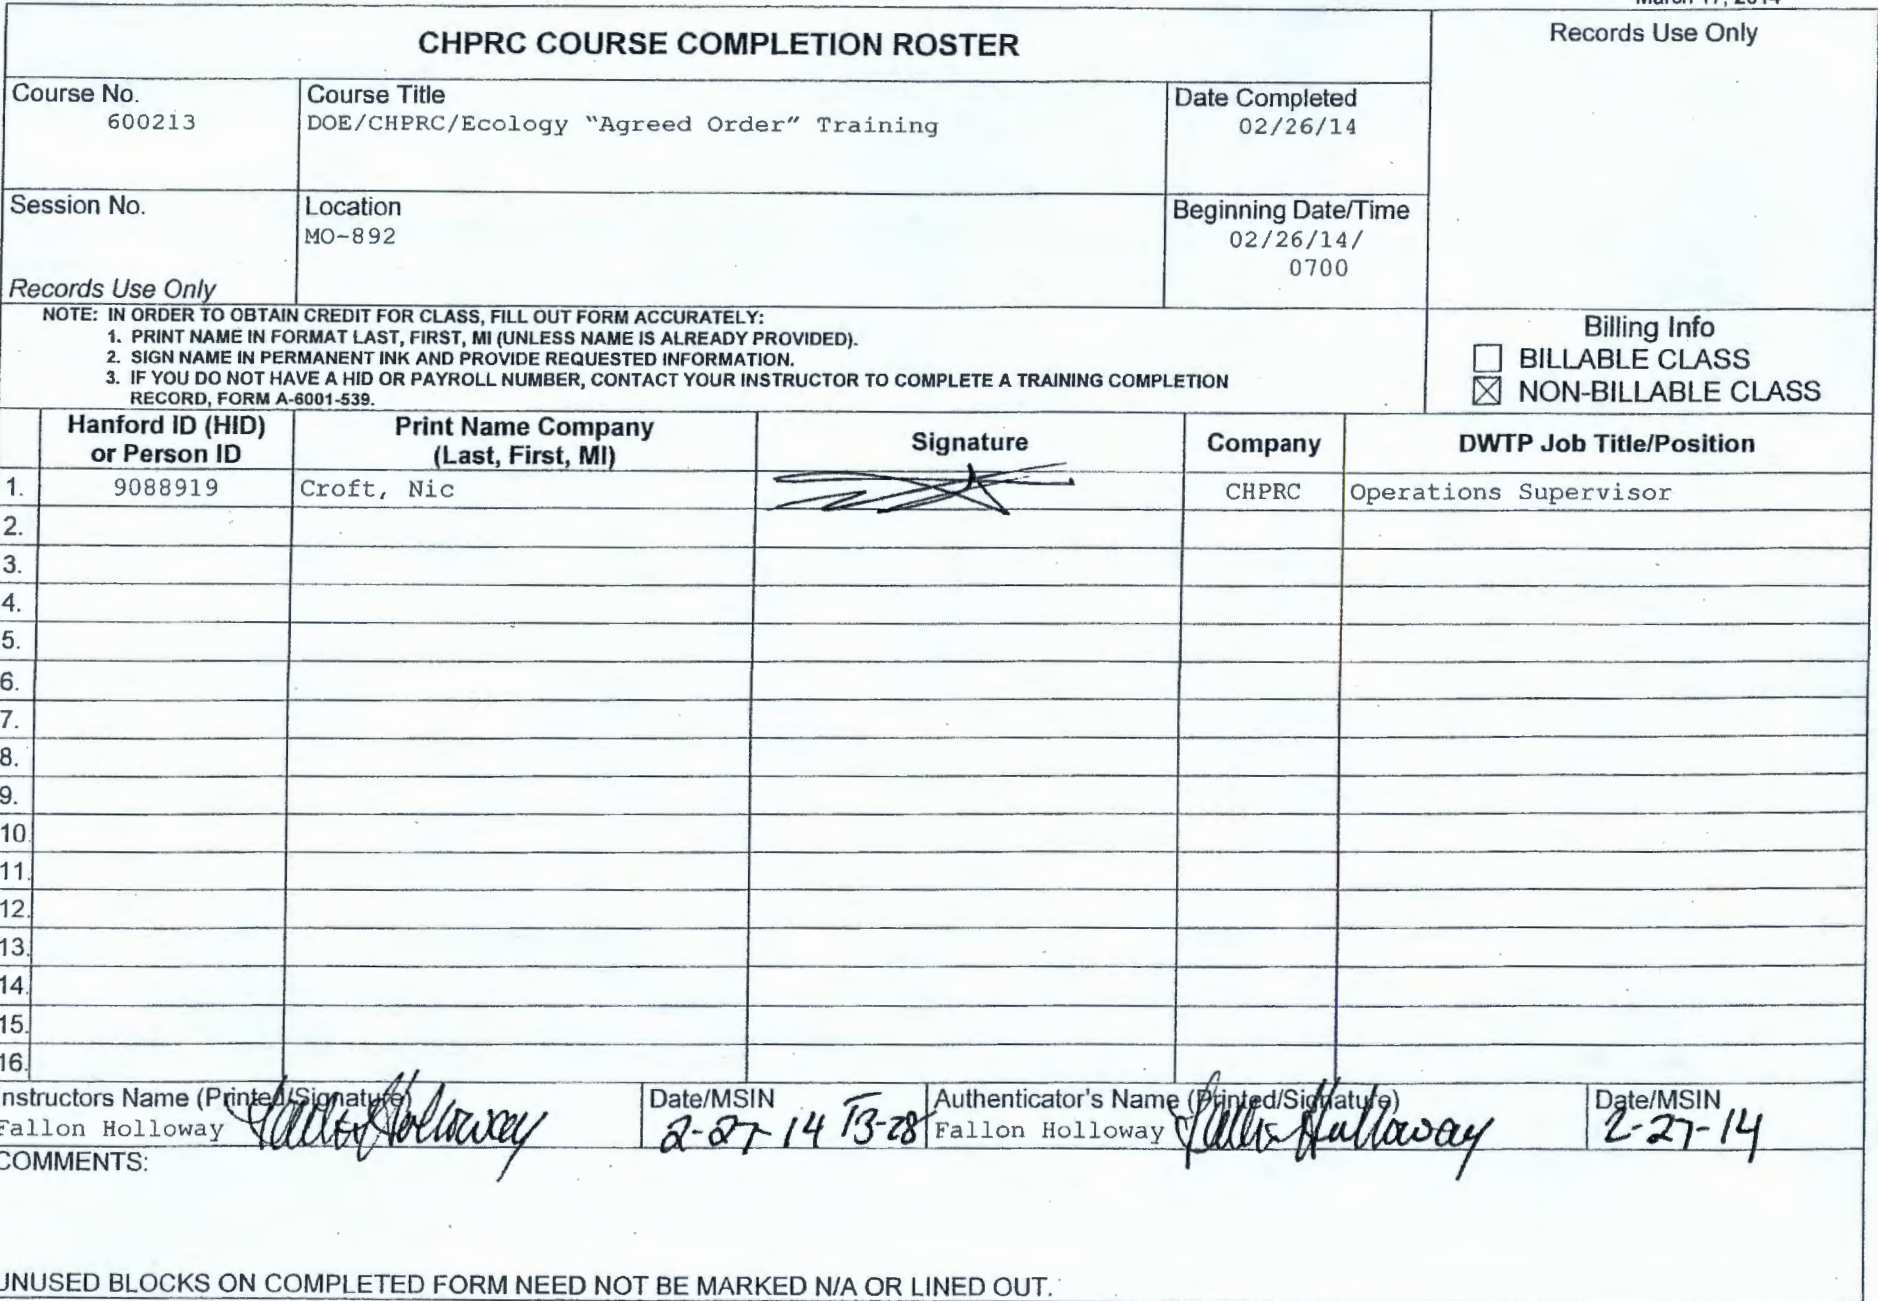 CHPRC COURSE COMPLETION ROSTER
Records Use Only
Course No.
600213
Course Title
DOE/CHPRC/Ecology “Agreed Order” Training
Date Completed
02/26/14
Session No.
Records Use Only
Location
MO-892
Beginning Date/Time
02/26/14/
0700
NOTE: IN ORDER TO OBTAIN CREDIT FOR CLASS, FILL OUT FORM ACCURATELY:
1. PRINT NAME IN FORMAT LAST, FIRST, MI (UNLESS NAME IS ALREADY PROVIDED).
2. SIGN NAME IN PERMANENT INK AND PROVIDE REQUESTED INFORMATION.
3. IF YOU DO NOT HAVE A HID OR PAYROLL NUMBER, CONTACT YOUR INSTRUCTOR TO COMPLETE A TRAINING COMPLETION
RECORD, FORM A-6001-539.
Billing Info
BILLABLE CLASS
☒ NON-BILLABLE CLASS
Hanford ID (HID)
or Person ID
Print Name Company
(Last, First, MI)
Signature
Company
DWTP Job Title/Position
1. 9088919 Croft, Nic CHPRC Operations Supervisor
2.
3.
4.
5.
6.
7.
8.
9.
10.
11.
12.
13.
14.
15.
16.
nstructors Name (Printed/Signature)
Fallon Holloway Fallon Holloway
Date/MSIN
2-27-14 T3-28
Authenticator's Name (Printed/Signature)
Fallon Holloway Fallon Holloway
Date/MSIN
2-27-14
COMMENTS:
UNUSED BLOCKS ON COMPLETED FORM NEED NOT BE MARKED N/A OR LINED OUT.